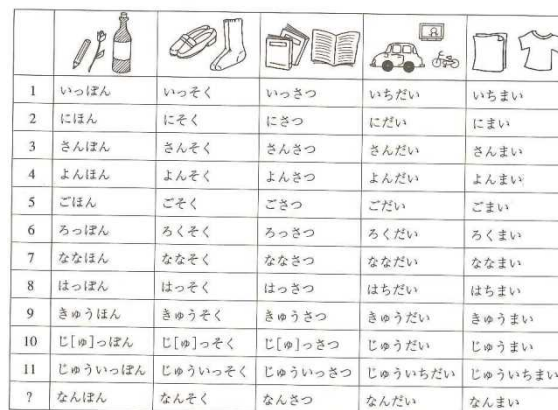 1 いっぽん いっそく いっさつ いちだい いちまい
2 にほん にそく にさつ にだい にまい
3 さんぼん さんそく さんさつ さんだい さんまい
4 よんほん よんそく よんさつ よんだい よんまい
5 ごほん ごそく ごさつ ごだい ごまい
6 ろっぽん ろくそく ろっさつ ろくだい ろくまい
7 ななほん ななそく ななさつ ななだい ななまい
8 はっぽん はっそく はっさつ はちだい はちまい
9 きゅうほん きゅうそく きゅうさつ きゅうだい きゅうまい
10 じ[ゅ]っぽん じ[ゅ]っそく じ[ゅ]っさつ じゅうだい じゅうまい
11 じゅういっぽん じゅういっそく じゅういっさつ じゅういちだい じゅういちまい
? なんぼん なんそく なんさつ なんだい なんまい